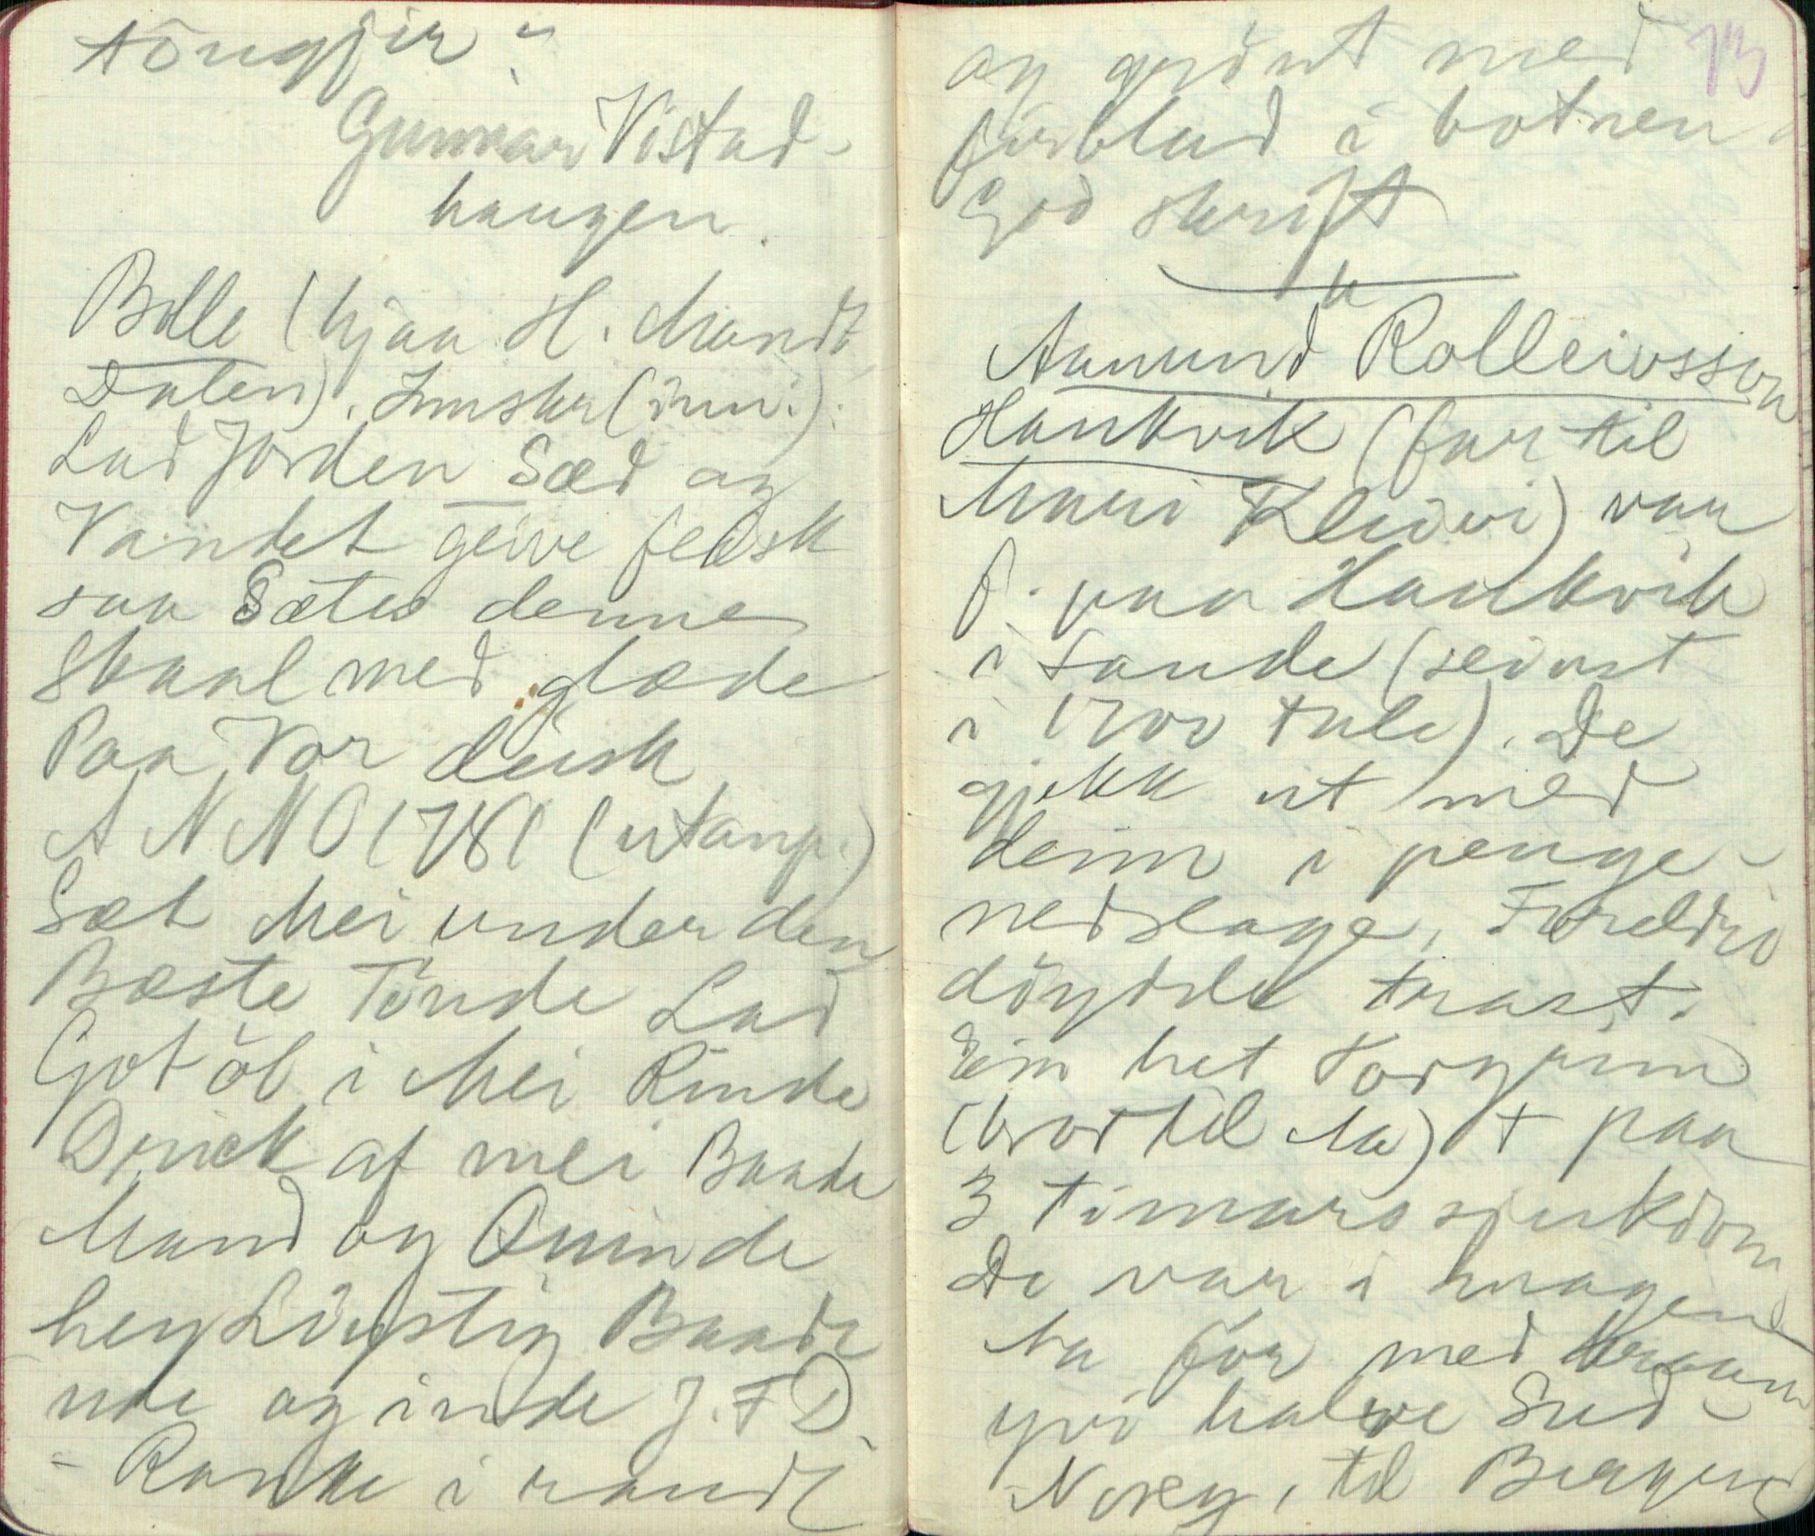 tôngjir"
Gunnar Vistad-
haugen.
Bolle (hjaa H. Mandt
Dalen). Innskr (inni).
Lad Jorden Sæd og
Vandet geive feisk
saa Sætes denne
Skaal med glæde
Paa Vor deisk
ANNO 1781 (utanp.)
Sæt Mei under den
Bæste Tönde Lad
Got öl i Mei Rinde
Drick af mei Baade
Mand og Quinde
hey Lüystig Baade
ude og inde J. F D.
- Ranke i raudt
og grönt med
firblad i botnen
God skrift
Aamund Rolleivsson
Haukvik (far til
Mari Kleivi) var
f. paa Haukvik
i Sande (seinst
i 1700 tale). De
gjekk ut med
deim i penge-
nedslage. Foreldri
döydde trast.
Ein het Torgrim
(bror til Aa) + paa
3 timars sjukdom
De var i magen
Aa för med
yvi halve Sud-
Noreg, til Bergen
13